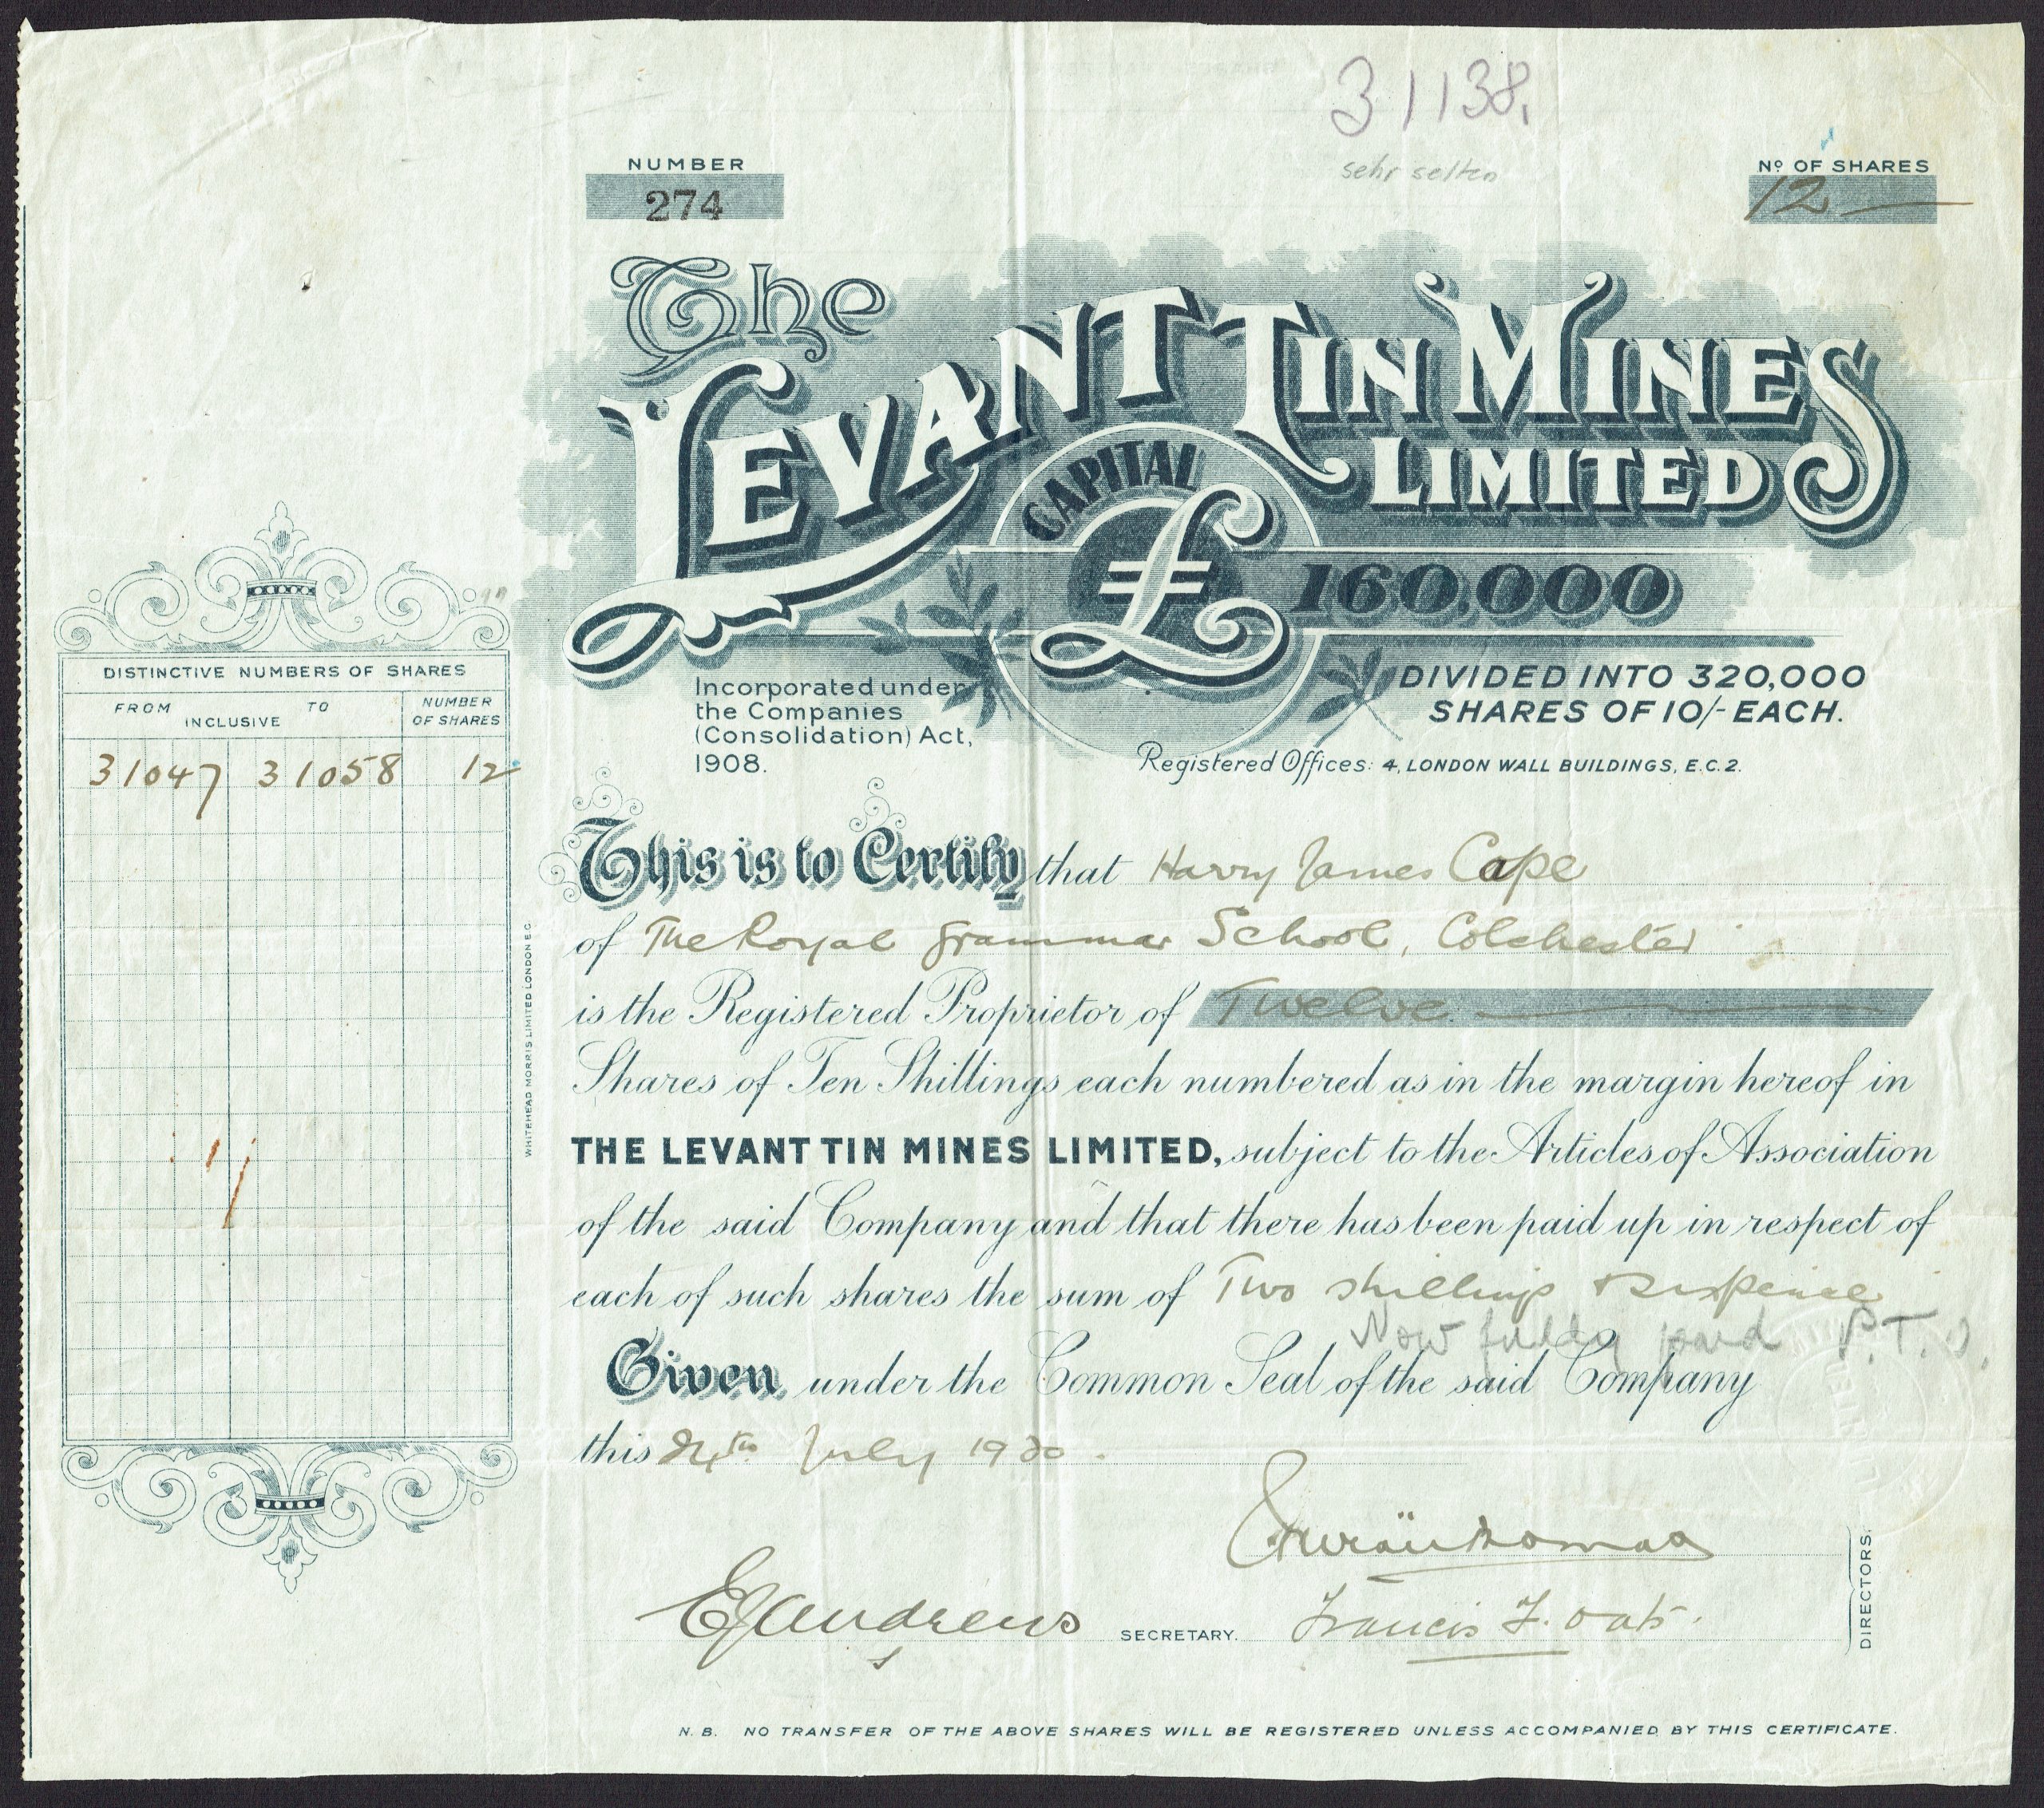 31138.
sehr selten
NUMBER
274
Nº OF SHARES
12
The
LEVANT TIN MINES
LIMITED
CAPITAL
£ 160,000
DIVIDED INTO 320,000
SHARES OF 10/- EACH.
Incorporated under
the Companies
(Consolidation) Act,
1908.
Registered Offices: 4, LONDON WALL BUILDINGS, E.C.2.
DISTINCTIVE NUMBERS OF SHARES
FROM INCLUSIVE TO
NUMBER OF SHARES
31047 31058 12
WHITEHEAD MORRIS LIMITED LONDON E.C.
This is to Certify that Harry James Cape
of The Royal Grammar School, Colchester
is the Registered Proprietor of Twelve
Shares of Ten Shillings each numbered as in the margin hereof in
THE LEVANT TIN MINES LIMITED, subject to the Articles of Association
of the said Company and that there has been paid up in respect of
each of such shares the sum of Two shillings & Sixpence
Now fully paid P.T.O.
Given under the Common Seal of the said Company
this 24th July 1920.
EJ Andrews SECRETARY.
Francis F. Oats.
DIRECTORS.
N.B. NO TRANSFER OF THE ABOVE SHARES WILL BE REGISTERED UNLESS ACCOMPANIED BY THIS CERTIFICATE.